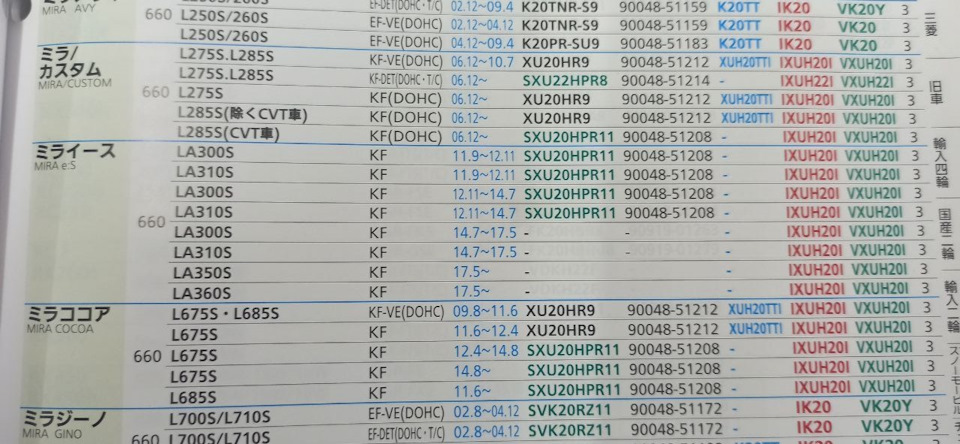 MIRA AVY
660
EF-DET(DOHC・T/C) 02.12~09.4 K20TNR-S9 90048-51159 K20TT IK20 VK20Y 3
L250S/260S EF-VE(DOHC) 02.12~04.12 K20TNR-S9 90048-51159 K20TT IK20 VK20 3
L250S/260S EF-VE(DOHC) 04.12~09.4 K20PR-SU9 90048-51183 K20TT IK20 VK20 3
ミラ/
カスタム
MIRA/CUSTOM
660
L275S.L285S KF-VE(DOHC) 06.12~10.7 XU20HR9 90048-51212 XUH20TTI IXUH20I VXUH20I 3
L275S.L285S KF-DET(DOHC・T/C) 06.12~ SXU22HPR8 90048-51214 - IXUH22I VXUH22I 3
L275S KF(DOHC) 06.12~ XU20HR9 90048-51212 XUH20TTI IXUH20I VXUH20I 3
L285S(除くCVT車) KF(DOHC) 06.12~ XU20HR9 90048-51212 XUH20TTI IXUH20I VXUH20I 3
L285S(CVT車) KF(DOHC) 06.12~ SXU20HPR11 90048-51208 - IXUH20I VXUH20I 3
ミライース
MIRA e:S
660
LA300S KF 11.9~12.11 SXU20HPR11 90048-51208 - IXUH20I VXUH20I 3
LA310S KF 11.9~12.11 SXU20HPR11 90048-51208 - IXUH20I VXUH20I 3
LA300S KF 12.11~14.7 SXU20HPR11 90048-51208 - IXUH20I VXUH20I 3
LA310S KF 12.11~14.7 SXU20HPR11 90048-51208 - IXUH20I VXUH20I 3
LA300S KF 14.7~17.5 - - - IXUH20I VXUH20I 3
LA310S KF 14.7~17.5 - - - IXUH20I VXUH20I 3
LA350S KF 17.5~ - - - IXUH20I VXUH20I 3
LA360S KF 17.5~ - - - IXUH20I VXUH20I 3
ミラココア
MIRA COCOA
660
L675S・L685S KF-VE(DOHC) 09.8~11.6 XU20HR9 90048-51212 XUH20TTI IXUH20I VXUH20I 3
L675S KF 11.6~12.4 XU20HR9 90048-51212 XUH20TTI IXUH20I VXUH20I 3
L675S KF 12.4~14.8 SXU20HPR11 90048-51208 - IXUH20I VXUH20I 3
L675S KF 14.8~ SXU20HPR11 90048-51208 - IXUH20I VXUH20I 3
L685S KF 11.6~ SXU20HPR11 90048-51208 - IXUH20I VXUH20I 3
ミラジーノ
MIRA GINO
660
L700S/L710S EF-VE(DOHC) 02.8~04.12 SVK20RZ11 90048-51172 - IK20 VK20Y 3
L700S/L710S EF-DET(DOHC・T/C) 02.8~04.12 SVK20RZ11 90048-51172 - IK20 VK20Y 3
三菱
旧車
輸入四輪
国産二輪
輸入二輪
スノーモービル